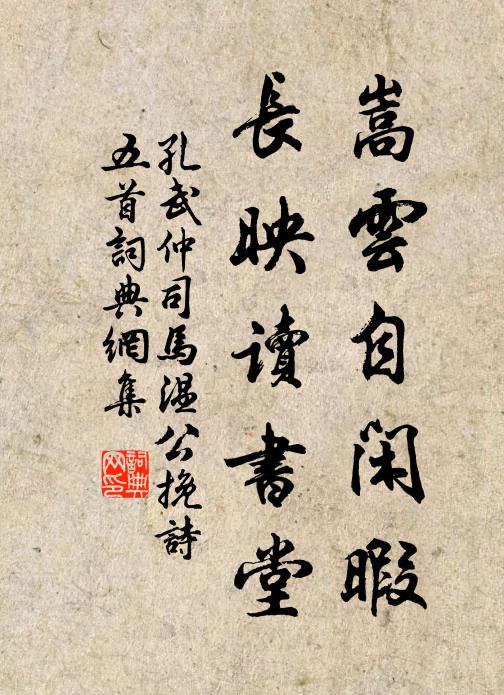 嵩雲自閑暇
長映讀書堂
孔武仲司馬温公挽詩
五首詞典網集
詞典
网印